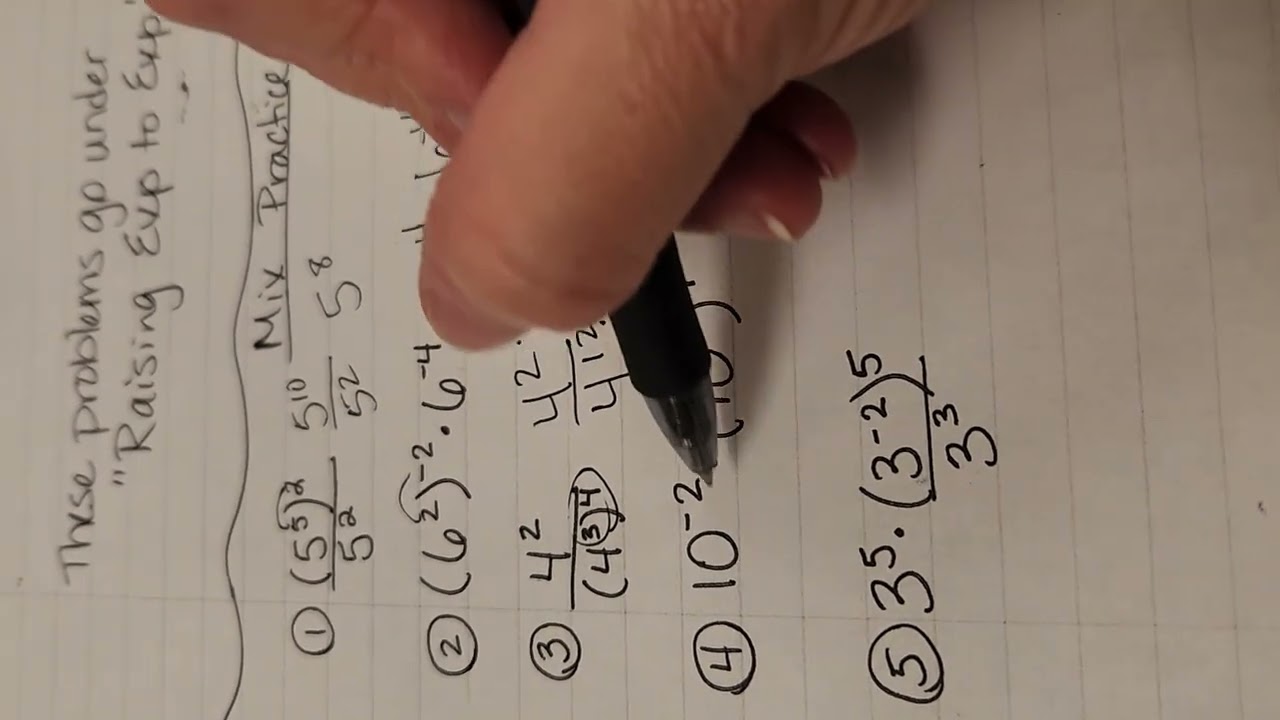 These problems go under
"Raising Exp to Exp"
Mix Practice
① (5⁵)² / 5² 5¹⁰ / 5² 5⁸
② (6²)⁻² · 6⁻⁴
③ 4² / (4³)⁴ 4² / 4¹²
④ 10⁻² (10 )
⑤ 3⁵ · (3⁻²)⁵ / 3³